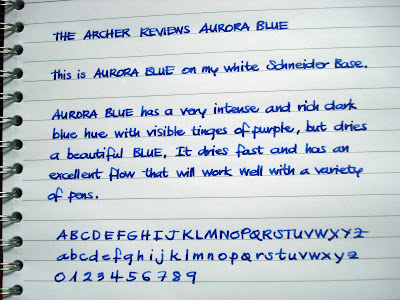 THE ARCHER REVIEWS AURORA BLUE
This is AURORA BLUE on my white Schneider Base.
AURORA BLUE has a very intense and rich dark
blue hue with visible tinges of purple, but dries
a beautiful BLUE. It dries fast and has an
excellent flow that will work well with a variety
of pens.
ABCDEFGHIJKLMNOPQRSTUVWXYZ
abcdefghijklmnopqrstuvwxyz
0123456789